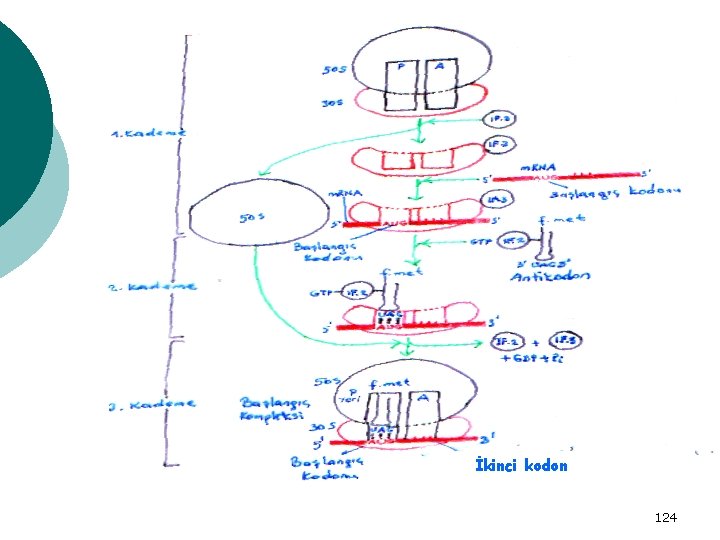 50S
P A
30S
IF.3
1. Kademe
IF-3
5' mRNA 3'
AUG
Başlangıç kodonu
mRNA
50S
5' AUG 3'
f.met
GTP IF.2
Başlangıç
Kodonu
3' UAC 5'
Antikodon
f.met
2. Kademe
GTP IF.2
UAC
5' AUG 3'
IF-2 + IF.3
+ GDP + Pi
50S
f.met
P
yeri
A
3. Kademe
Başlangıç
Kompleksi
30S
UAC
5' AUG 3'
Başlangıç
Kodonu
İkinci kodon
124